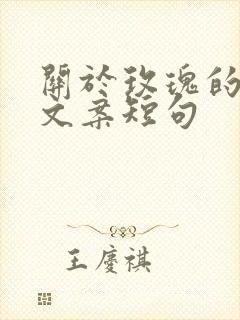 關於玫瑰的
文案短句
王慶祺